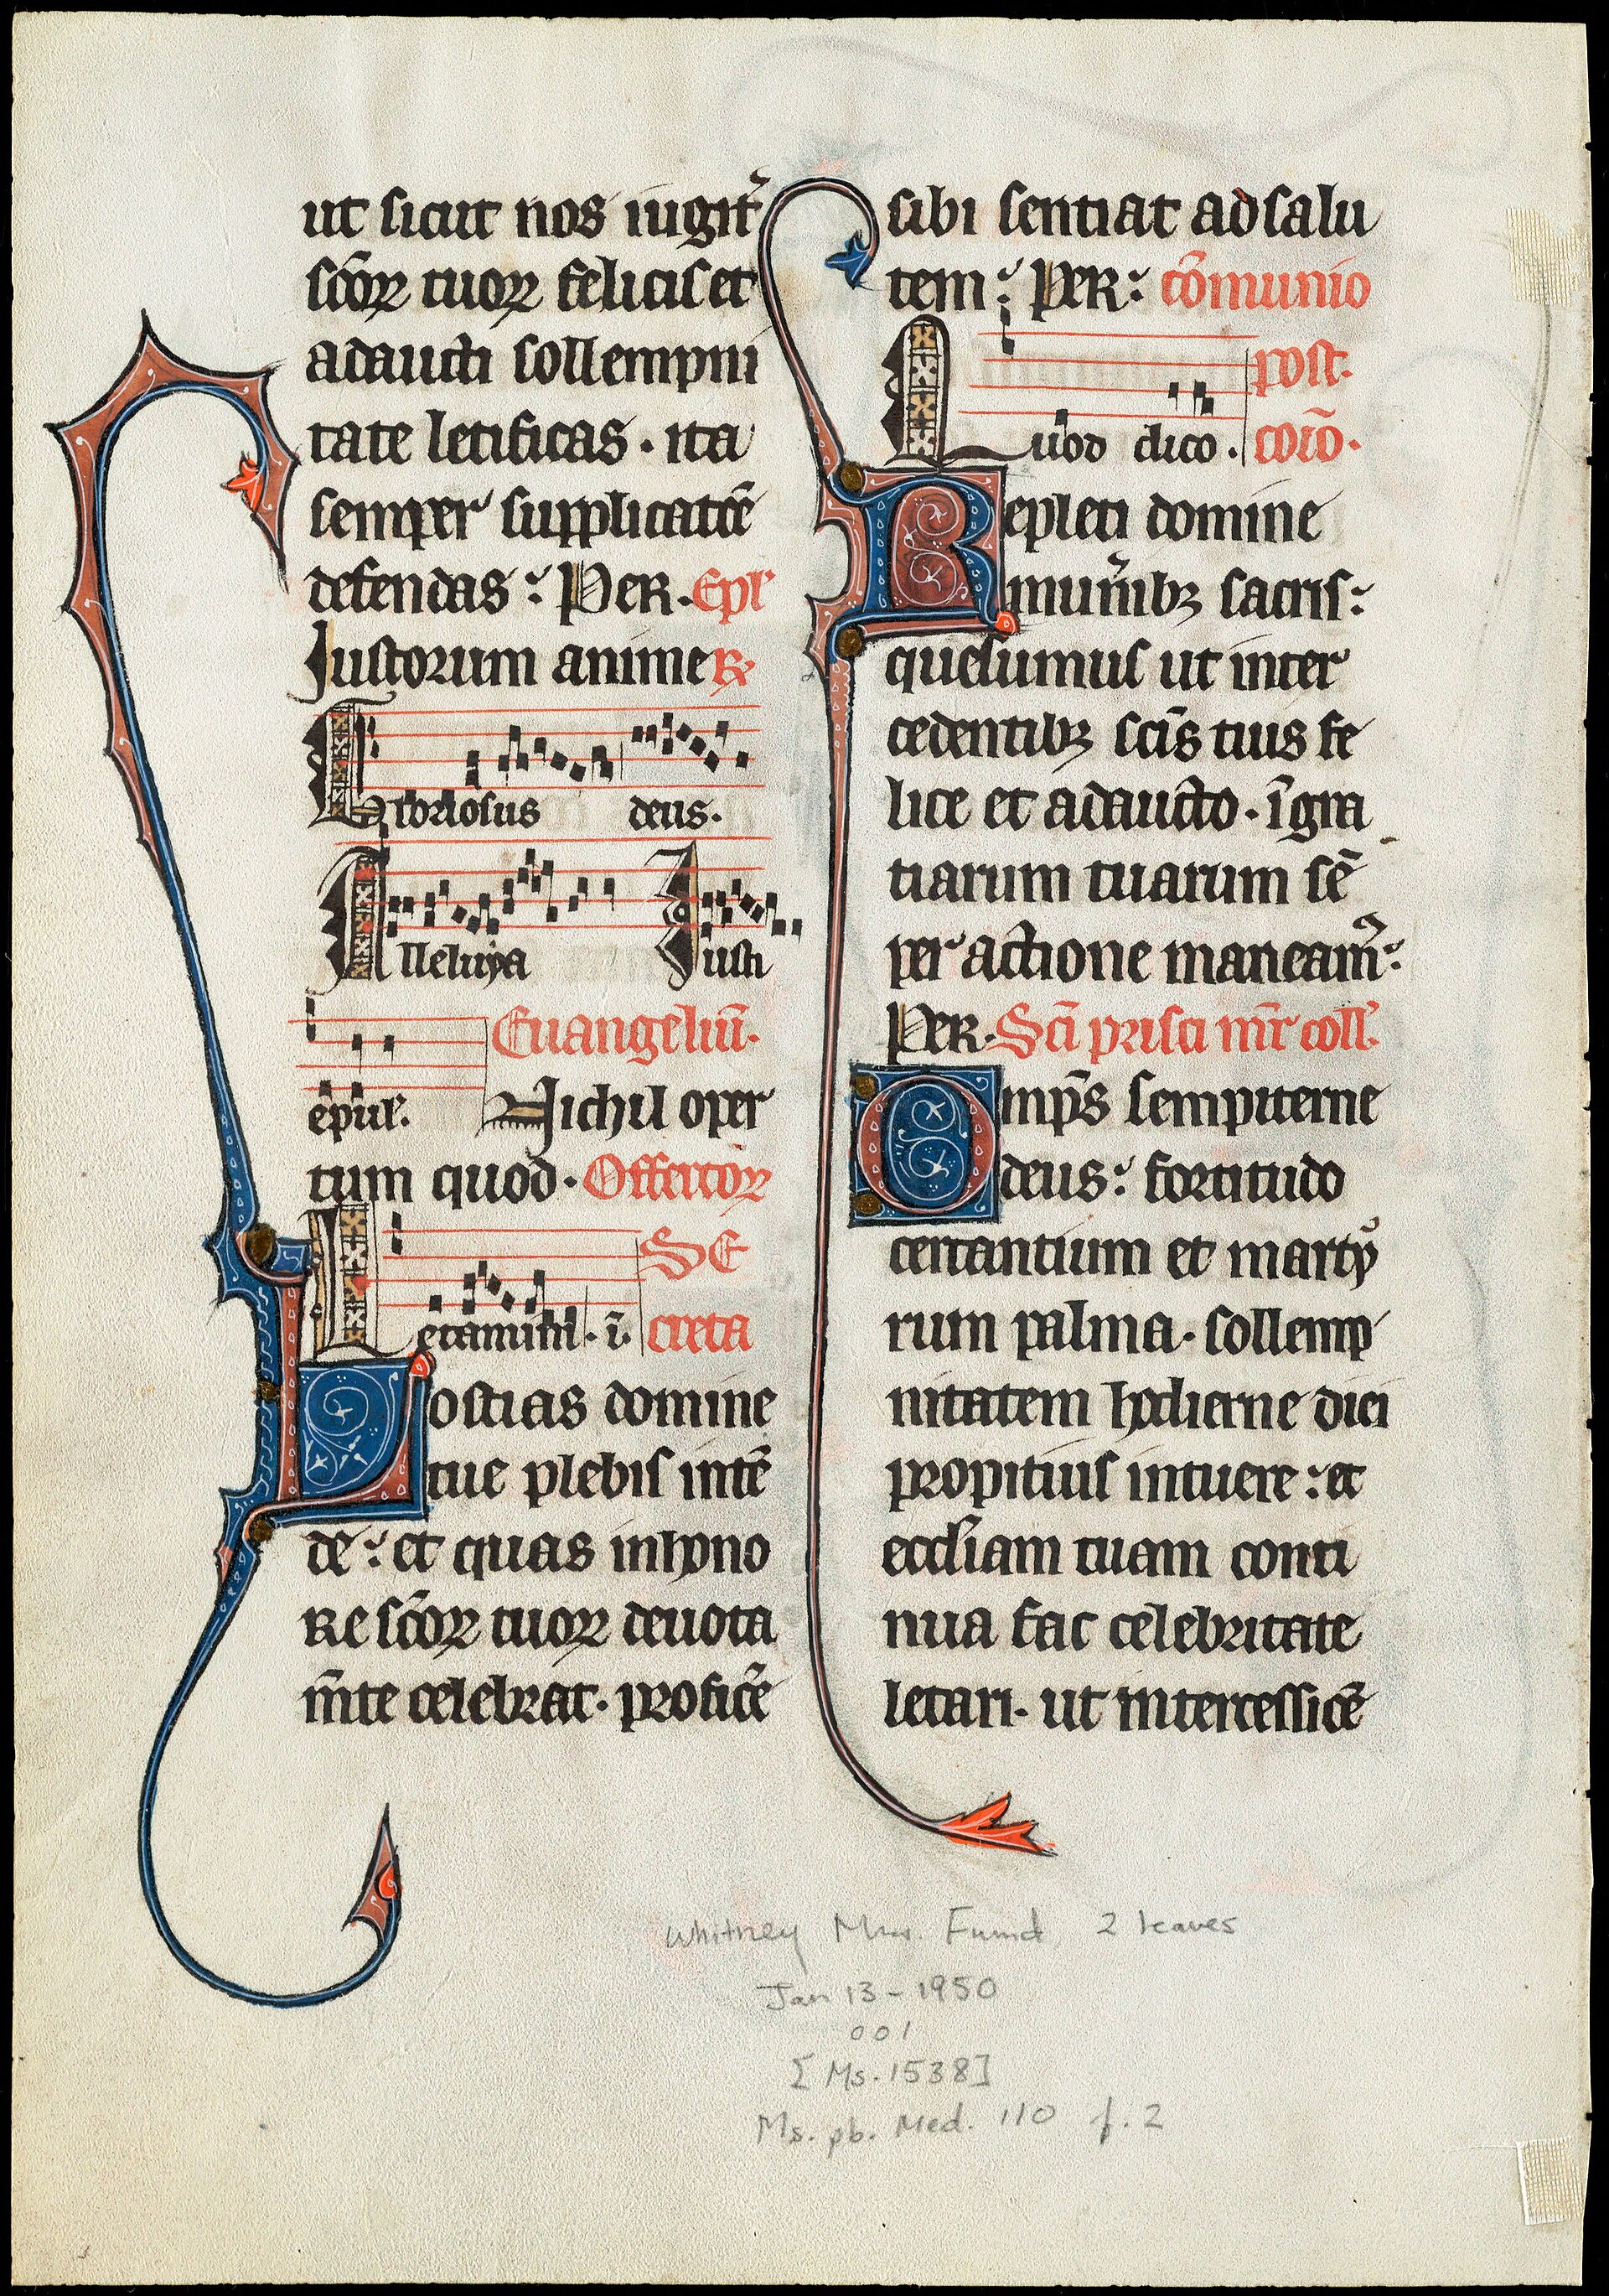 ut sicut nos iugit᷑
sc̄oꝝ tuoꝝ felicis et
adaucti sollempni
tate letificas · ita
semper supplicatōe
defendas : PER · Ep̄l
Iustorum anime R̷
Gloriosus deus ·
Alleluya Iusti
epul᷑ · Euangeliū ·
Nichil oper
tum quod · Offertoꝝ
Letamini · ī · SE
creta
Hostias domine
tue plebis intē
de : et quas in hono
RE sc̄oꝝ tuoꝝ deuota
m̄te celebrat · proficē
sibi sentiat ad salu
tem : PER : cōmunio
Quod dico · post ·
com̄ ·
Repleti domine
mun̄ibꝫ sacris :
quesumus ut inter
cedentibꝫ sc̄is tuis fe
lice et adaucto · ī gra
tiarum tuarum sē
per actione maneam᷑ :
PER · Sc̄i prisci mr̄ coll᷑
Omp̄s sempiterne
deus : fortitudo
certantium et martẏ
rum palma · sollemp
nitatem hodierne diei
propitius intuere : et
eccl̄iam tuam conti
nua fac celebritate
letari · ut intercessiōe
Whitney Mus. Fund, 2 leaves
Jan 13 - 1950
001
[Ms. 1538]
Ms. pb. Med. 110 f. 2